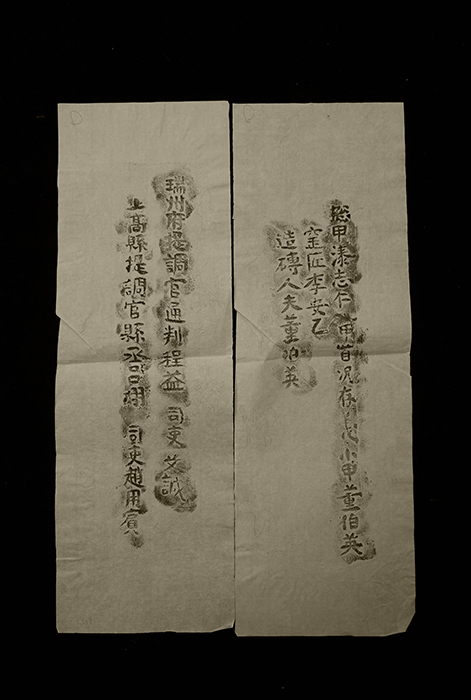 總甲漆志仁 甲首況存 小甲董伯英
窑匠李安乙
造磚人夫董伯英
瑞州府提調官通判程益 司吏 艾誠
上高縣提調官縣丞呂 司吏趙用賓